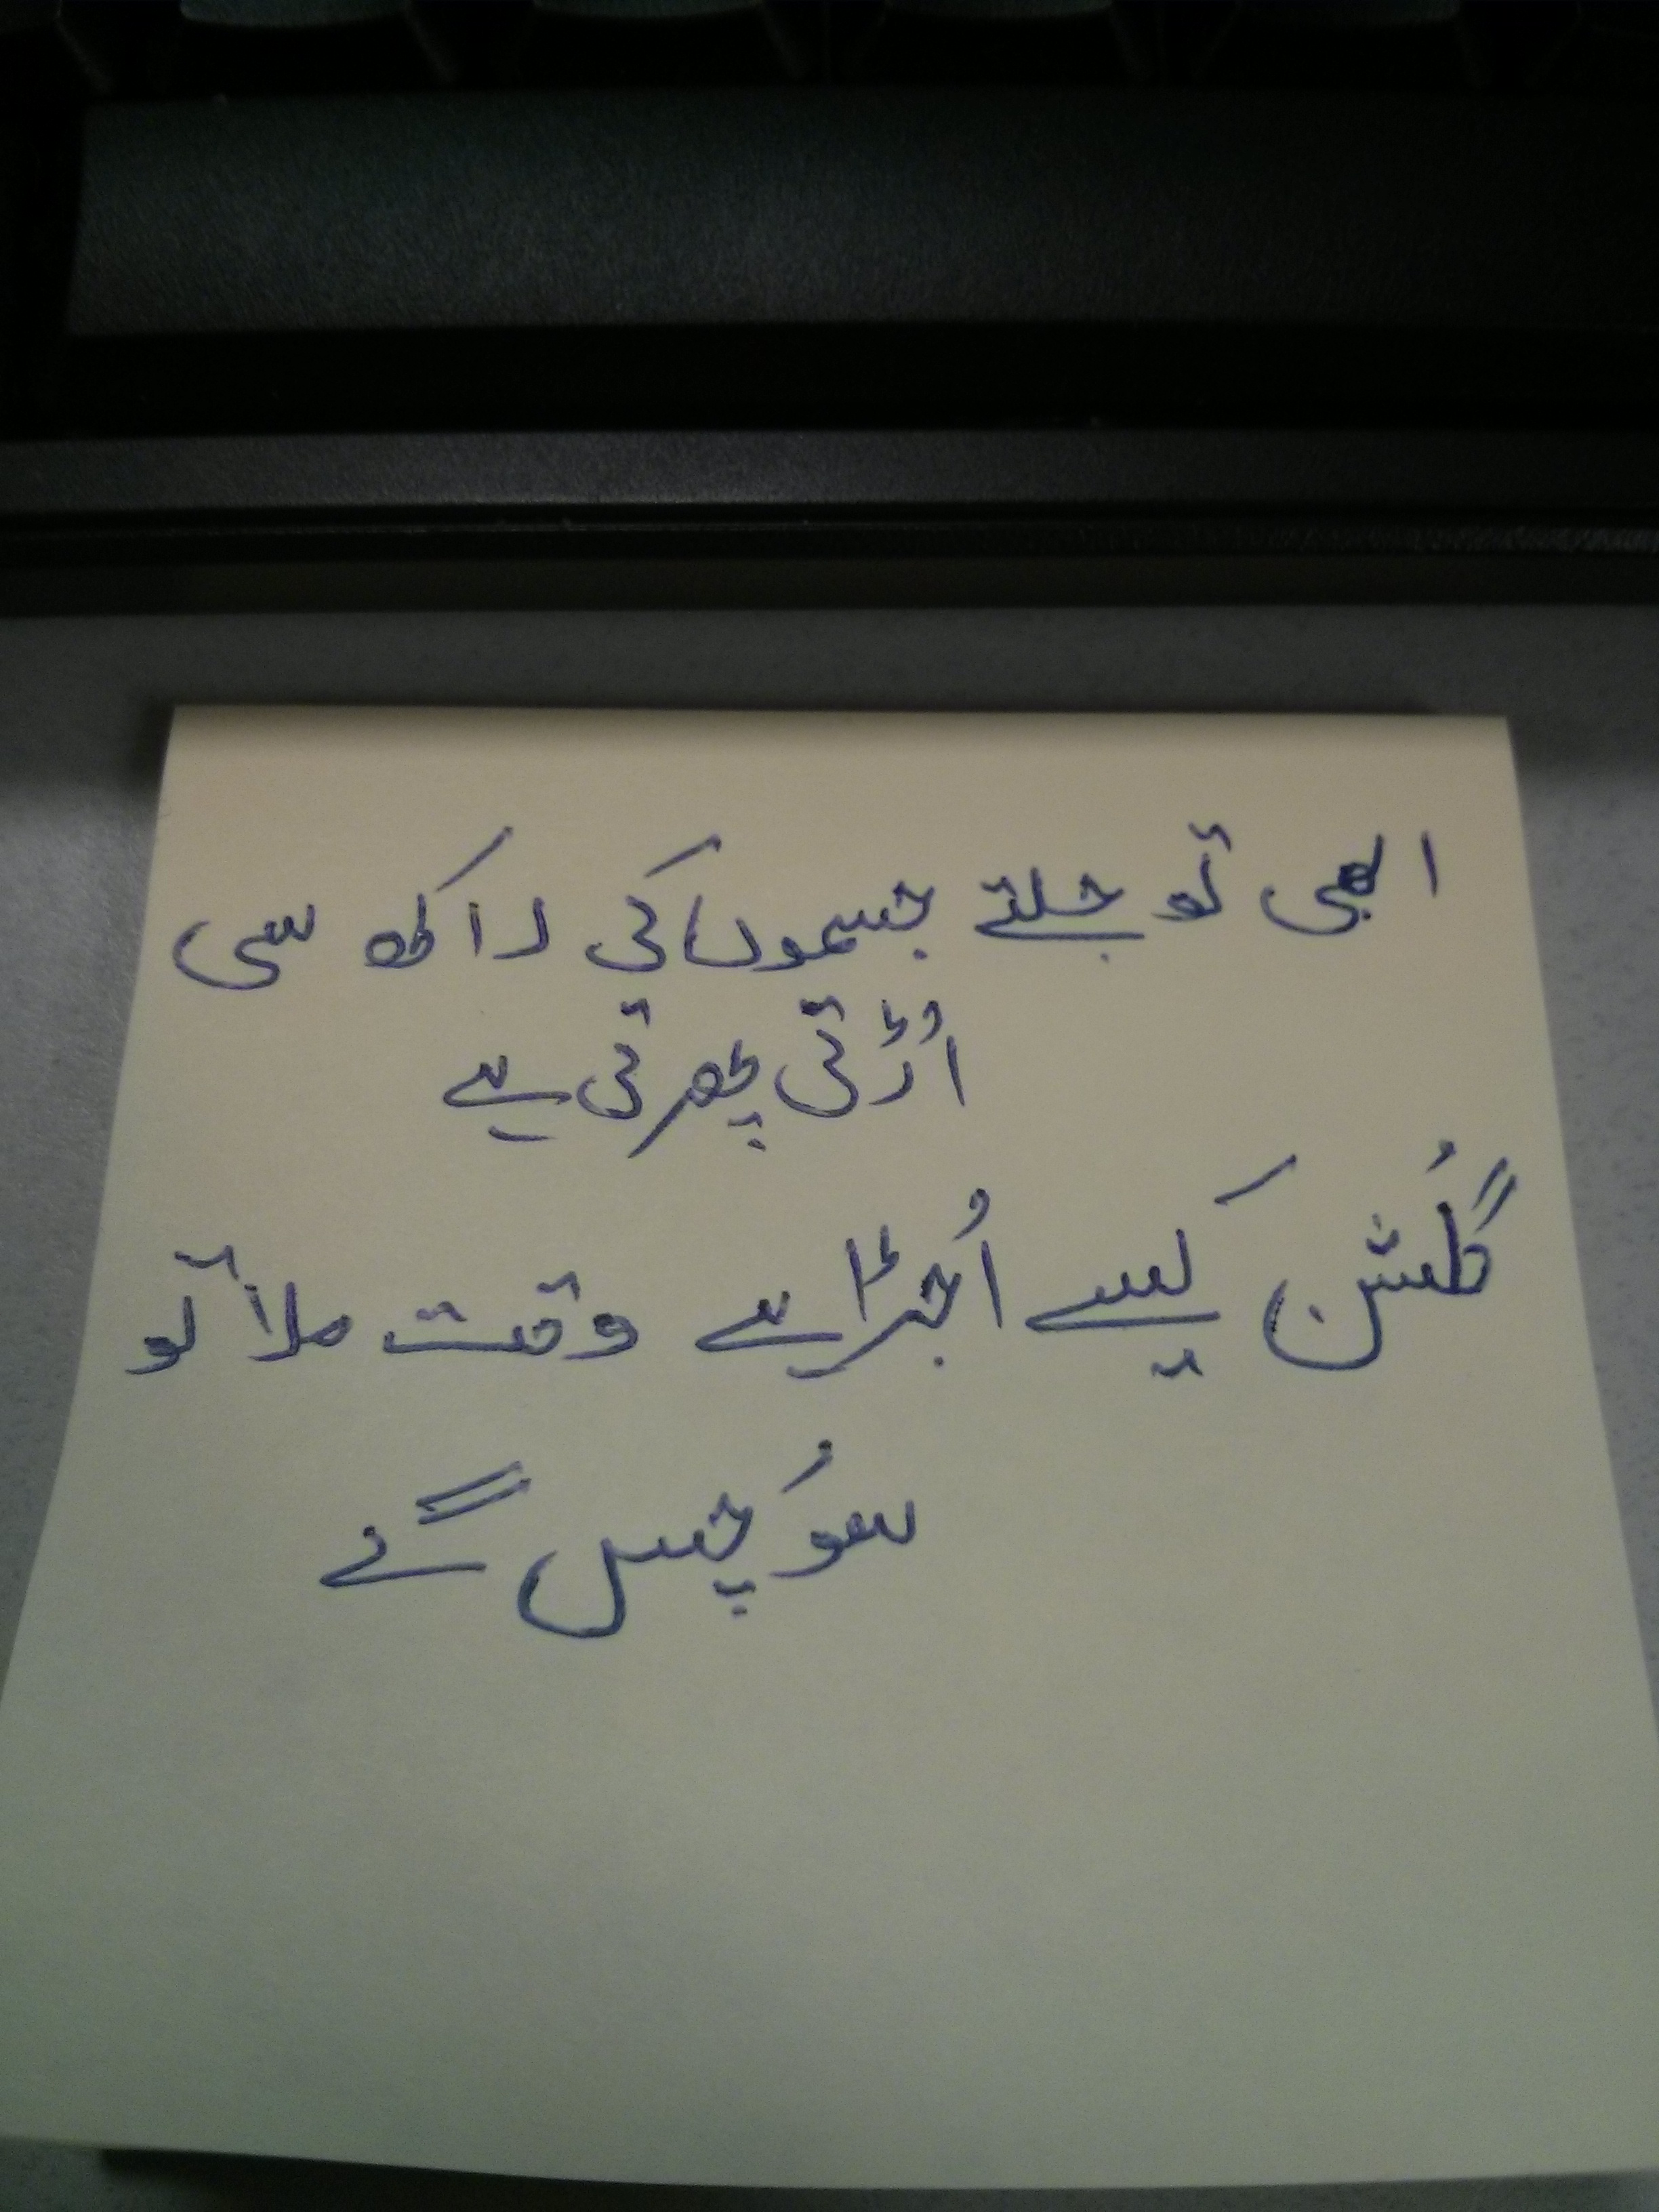 ابھی تو جلتے جسموں کی راکھ سی
اُڑتی پھرتی ہے
گلُشن کیسے اُجڑا ہے وقت ملا تو
سوُچیں گے